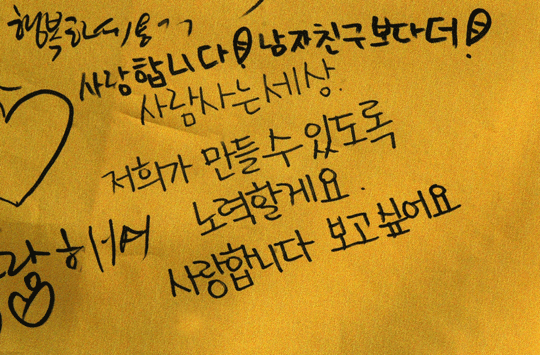 행복하세용ㄱㄱ
사랑합니다! 남자친구보다 더!
사람사는세상.
저희가 만들수있도록
노력할게요.
사랑합니다 보고싶어요